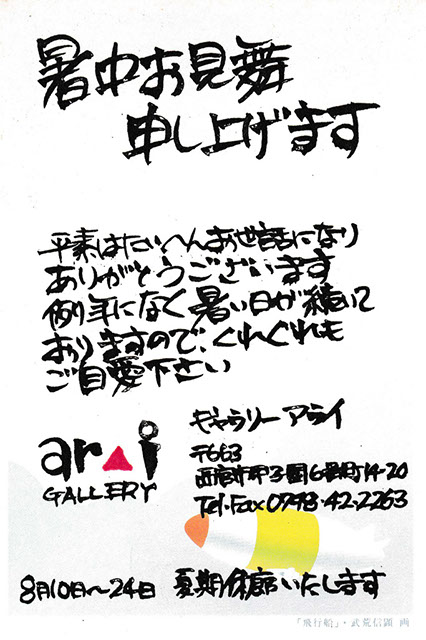 暑中お見舞
申し上げます
平素はたいへんお世話になり
ありがとうございます
例年になく暑い日が続いて
おりますので、くれぐれも
ご自愛下さい
arai
GALLERY
ギャラリーアライ
〒663
西宮市甲子園6番町14-20
Tel.Fax 0798・42・2263
8月10日〜24日 夏期休廊いたします
「飛行船」・武荒信顕 画